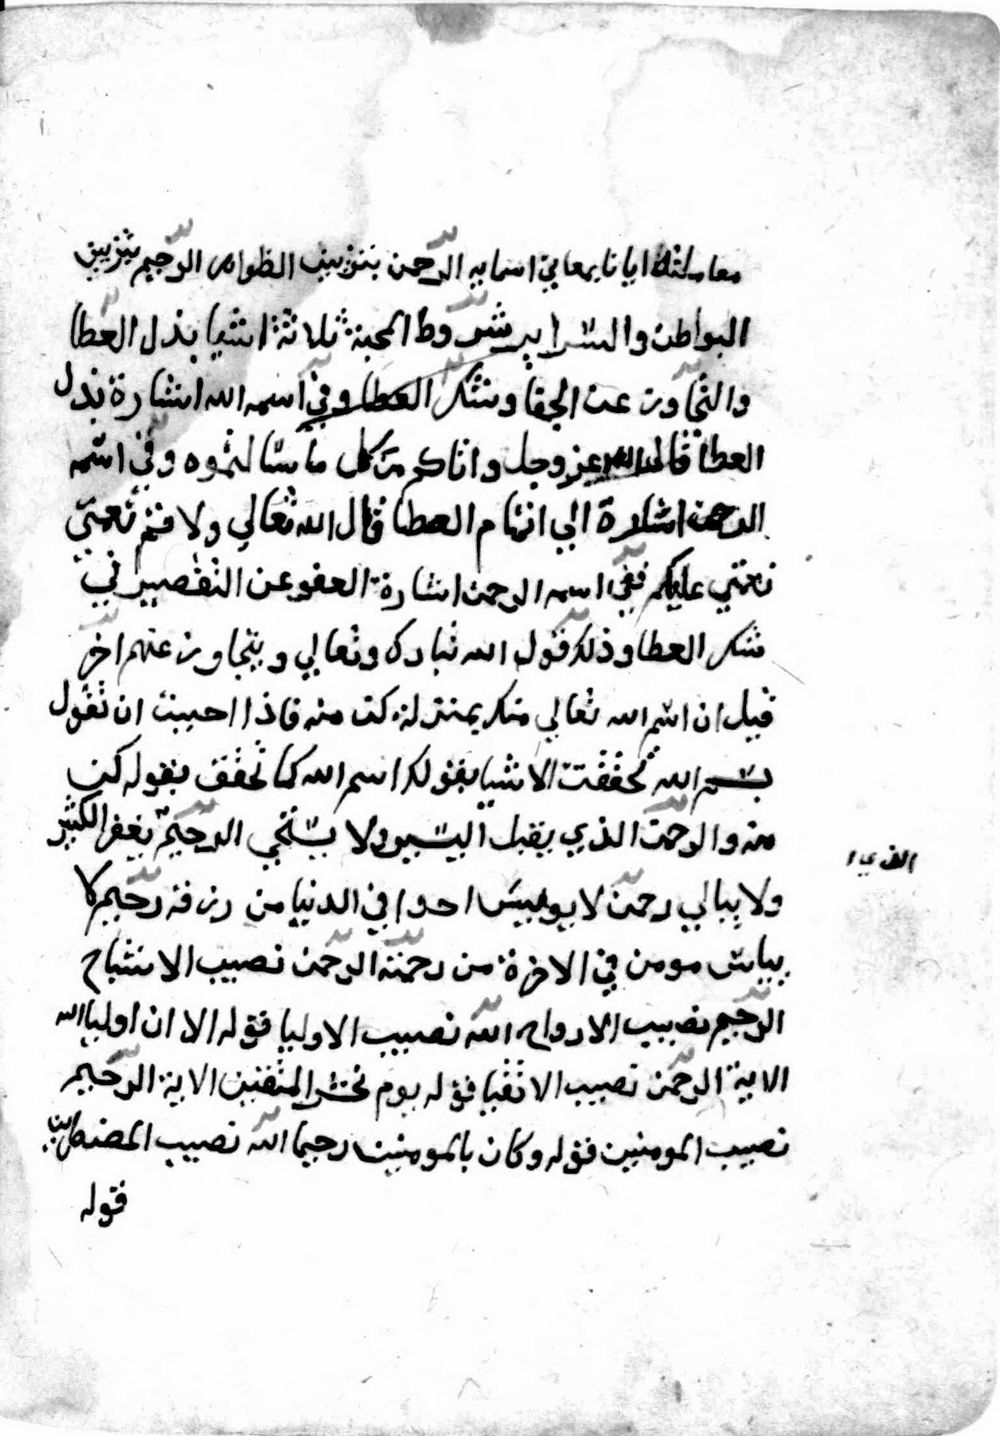 معاملته ايانا بمعاني اسمايه الرحمن بتزيين الظواهر الرحيم بتزيين
البواطن والسراير شروط المحبة ثلاثة اشيا بذل العطا
والتجاوز عن الجفا وشكر العطا وفي اسمه الله اشارة بذل
العطا قال الله عز وجل واتاكم من كل ما سالتموه وفي اسمه
الرحمن اشارة الي اتمام العطا قال الله تعالي ولاتم نعمتي
نعمتي عليكم ففي اسمه الرحمن اشارة العفو عن التقصير في
شكر العطا وذلك قول الله تبارك وتعالي ويتجاوز عنهم اخر
قيل ان اسم الله تعالي منك بمنزلة كن منه فاذا احببت ان تقول
بسم الله تحققت الاشيا بقولك اسم الله كما تحقق بقوله كن
منه والرحمن الذي يقبل اليسير ولا يستحي الرحيم يغفر الكثير
ولا يبالي رحمن لا يويس احدا في الدنيا من رزقه رحيم لا
يياس مومن في الاخرة من رحمته الرحمن نصيب الاشباح
الرحيم نصيب الارواح الله نصيب الاوليا قوله الا ان اوليا الله
الاية الرحمن نصيب الاتقيا قوله يوم نحشر المتقين الاية الرحيم
نصيب المومنين قوله وكان بالمومنين رحيما الله نصيب المضطرين
قوله
الذي